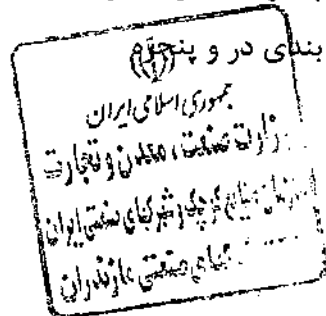 بندی در و پنجره
جمهوری اسلامی ایران
وزارت صنعت، معدن و تجارت
سازمان صنایع کوچک و شهرکهای صنعتی ایران
صنعتی مازندران